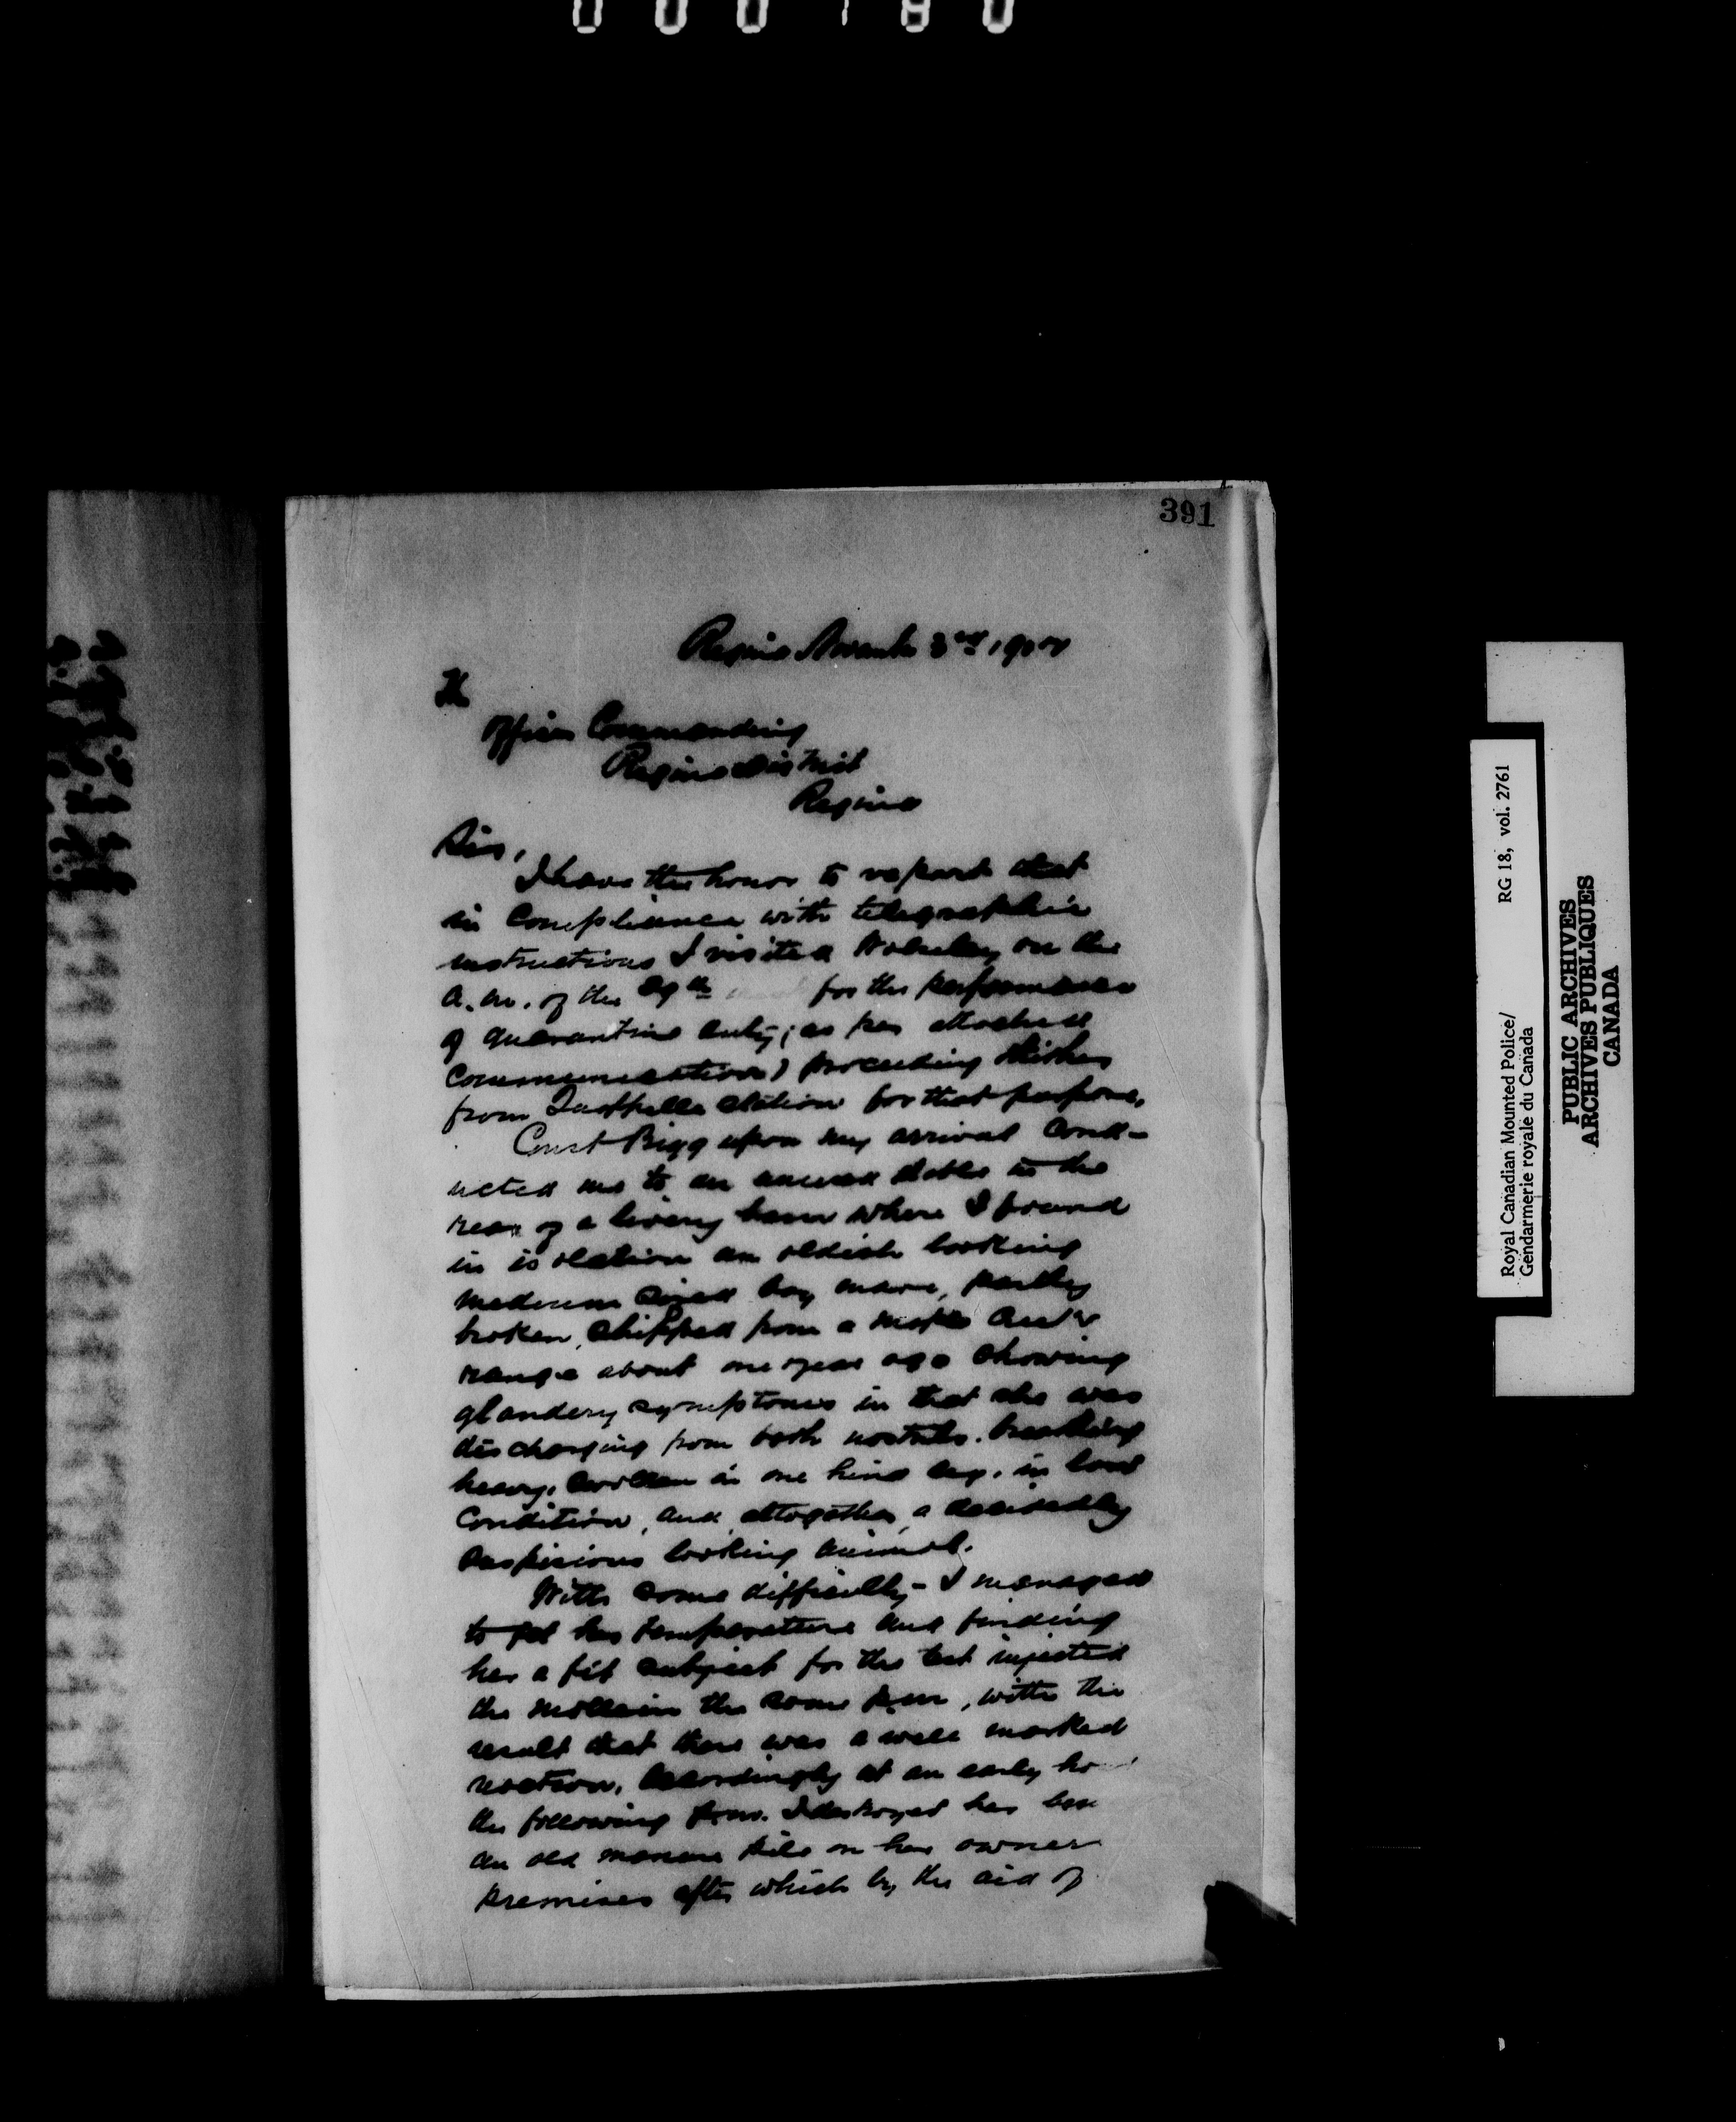 391
Regina November 3rd 190
The
Officer Commanding
Regina District
Regina
Sir,
I have the honor to report that
in compliance with telegraphic
instructions I visited Wolseley on the
a.m. of the 29th for the performance
of quarantine duty; as per attached
communication) proceeding thither
from Qu'Appelle station for that purpose.
Const Bigg upon my arrival cond-
ucted me to an annexed stable in the
rear of a livery barn where I found
in isolation an oldish looking
medium sized bay mare, partly
broken, shipped from a Maple Creek
range about one year ago showing
glandery symptoms in that she was
discharging from both nostrils. breathing
heavy, swollen in one hind leg, in low
condition, and, altogether, a decidedly
suspicious looking animal.
With some difficulty - I managed
to get her temperature and finding
her a fit subject for the test injected
the mallein the same p.m, with the
result that there was a well marked
reaction, accordingly at an early ho
the following p.m. I destroyed her
an old manure pile on her owner
premises after which by the aid of
Royal Canadian Mounted Police/ RG 18, vol. 2761
Gendarmerie royale du Canada
PUBLIC ARCHIVES
ARCHIVES PUBLIQUES
CANADA